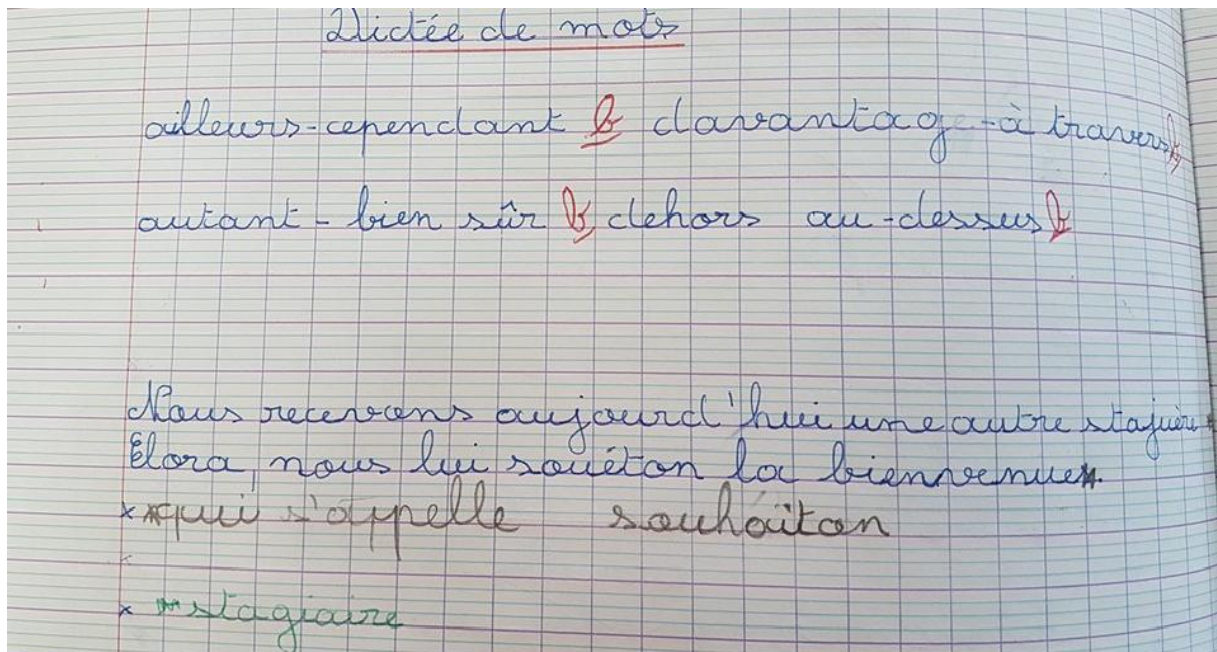 Dictée de mots
ailleurs-cependant b davantag -à travers b
autant - bien sûr b dehors au-dessus b
Nous recevons aujourd'hui une autre stajière *
Elora, nous lui souéton la bienvenue
x qui s'appelle souhaiton
x stagiaire